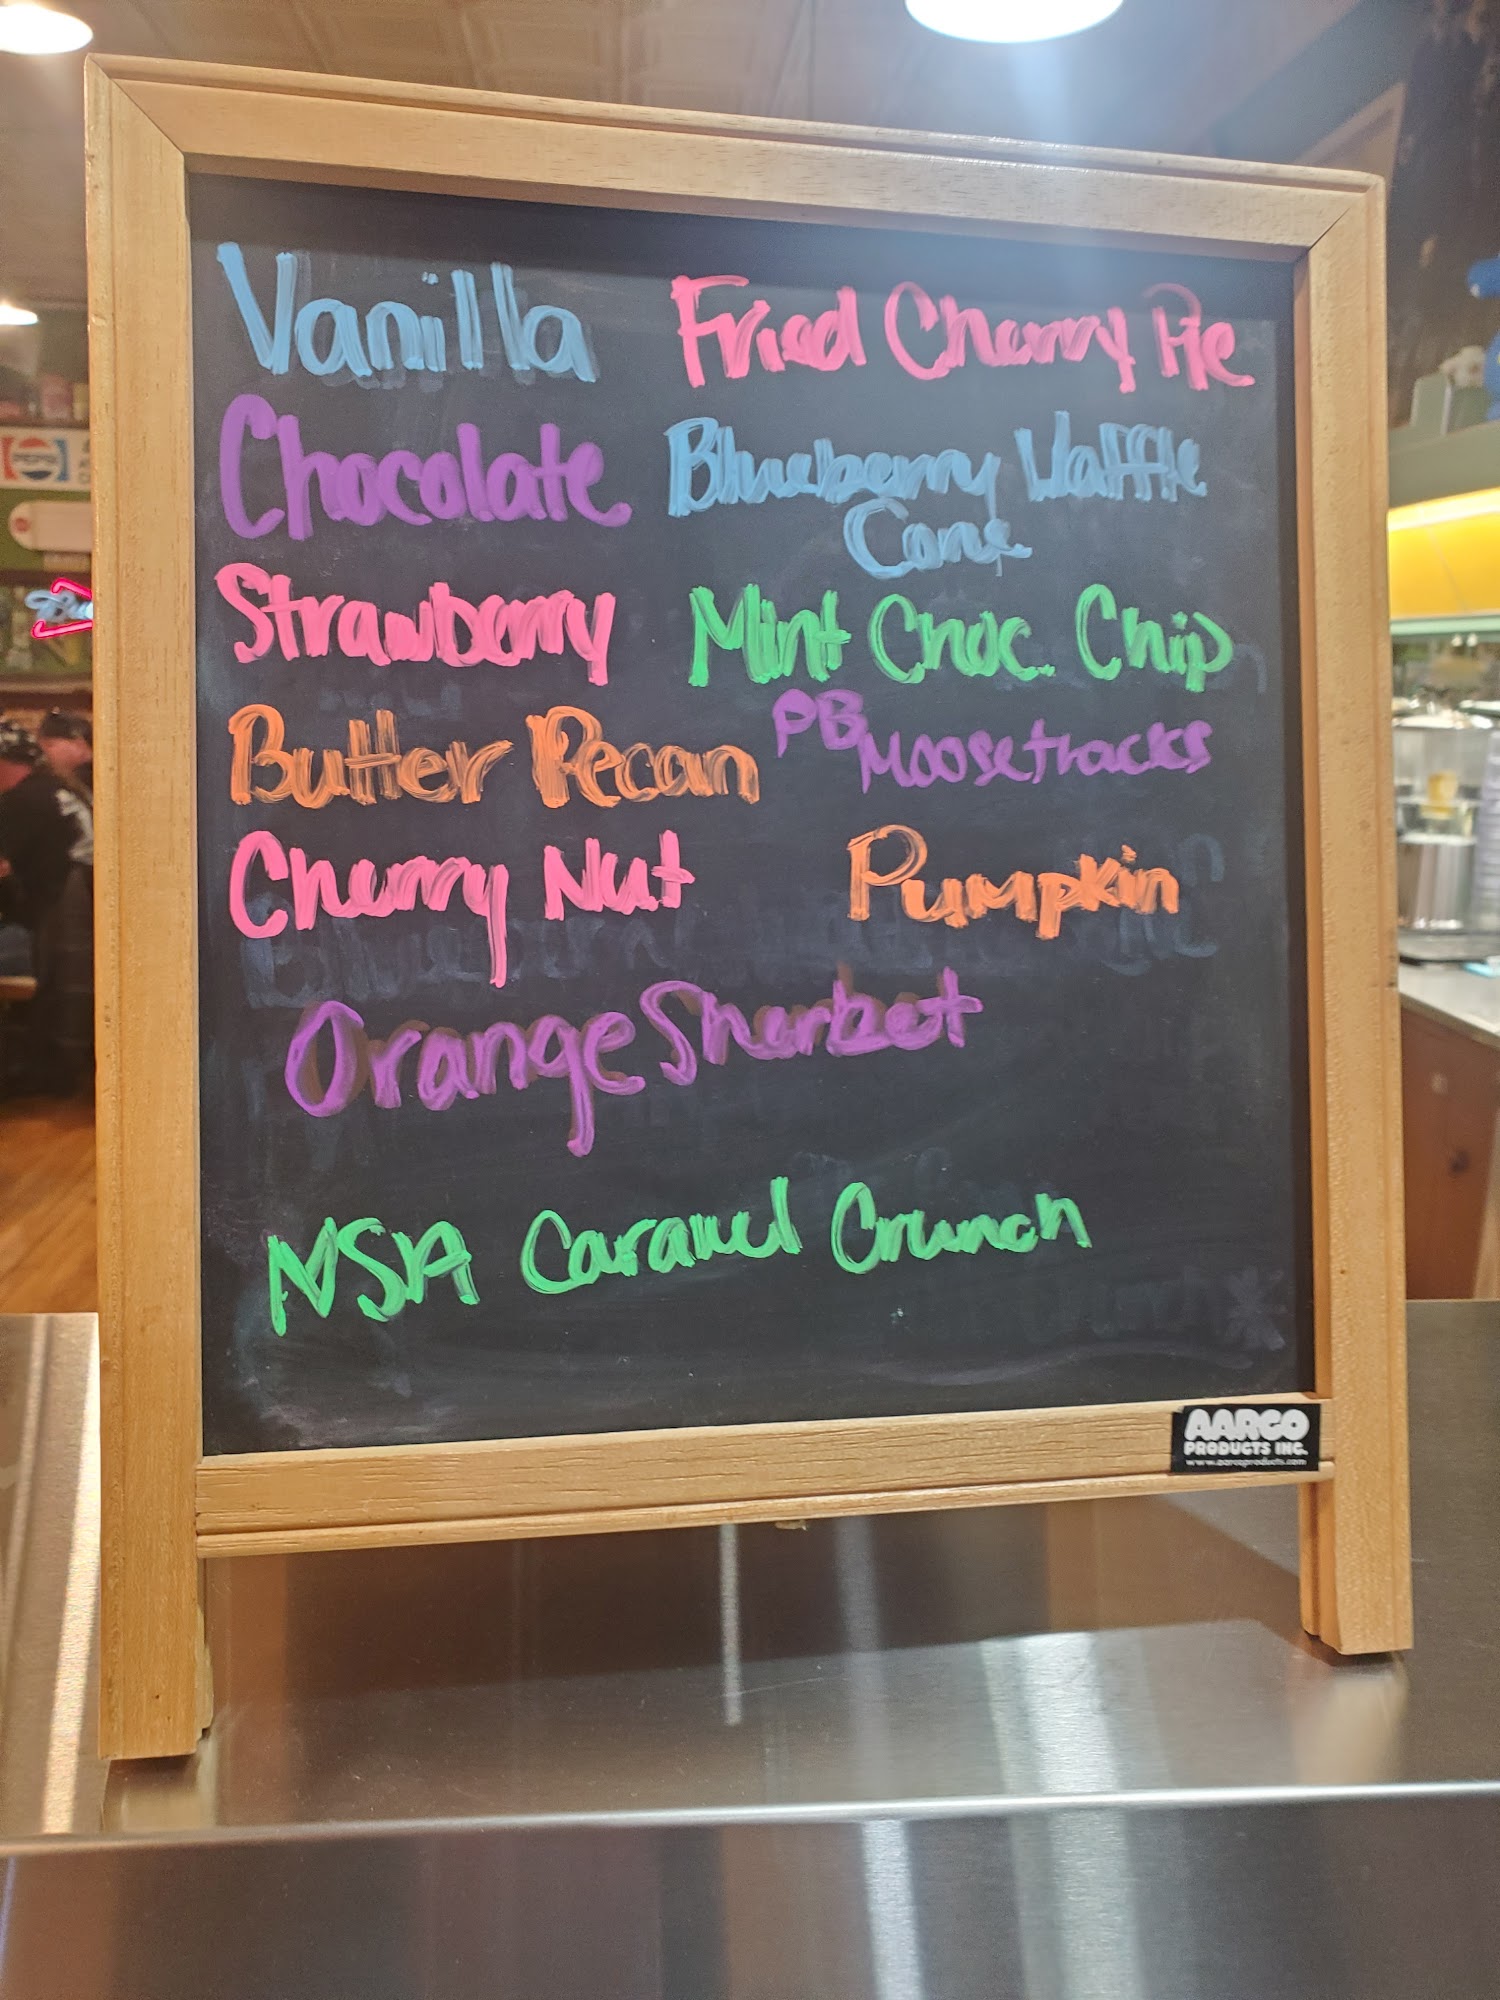 Vanilla
Chocolate
Strawberry
Butter Pecan
Cherry Nut
Fried Cherry Pie
Blueberry Waffle
Cone
Mint Choc. Chip
PB Moosetracks
Pumpkin
Orange Sherbet
NSA Caramel Crunch
AARCO
PRODUCTS INC.
www.aarcoproducts.com
PEPSI